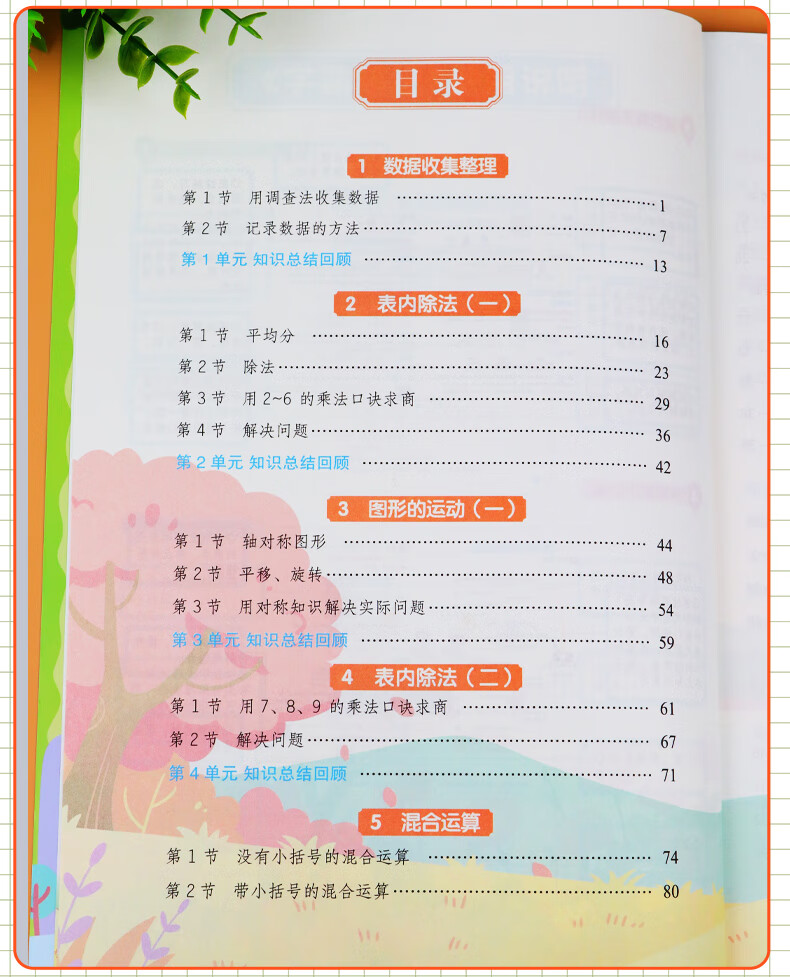 目录
1 数据收集整理
第1节 用调查法收集数据 ……………………………… 1
第2节 记录数据的方法 ……………………………… 7
第1单元 知识总结回顾 ……………………………… 13
2 表内除法（一）
第1节 平均分 ……………………………… 16
第2节 除法 ……………………………… 23
第3节 用2~6的乘法口诀求商 ……………………………… 29
第4节 解决问题 ……………………………… 36
第2单元 知识总结回顾 ……………………………… 42
3 图形的运动（一）
第1节 轴对称图形 ……………………………… 44
第2节 平移、旋转 ……………………………… 48
第3节 用对称知识解决实际问题 ……………………………… 54
第3单元 知识总结回顾 ……………………………… 59
4 表内除法（二）
第1节 用7、8、9的乘法口诀求商 ……………………………… 61
第2节 解决问题 ……………………………… 67
第4单元 知识总结回顾 ……………………………… 71
5 混合运算
第1节 没有小括号的混合运算 ……………………………… 74
第2节 带小括号的混合运算 ……………………………… 80